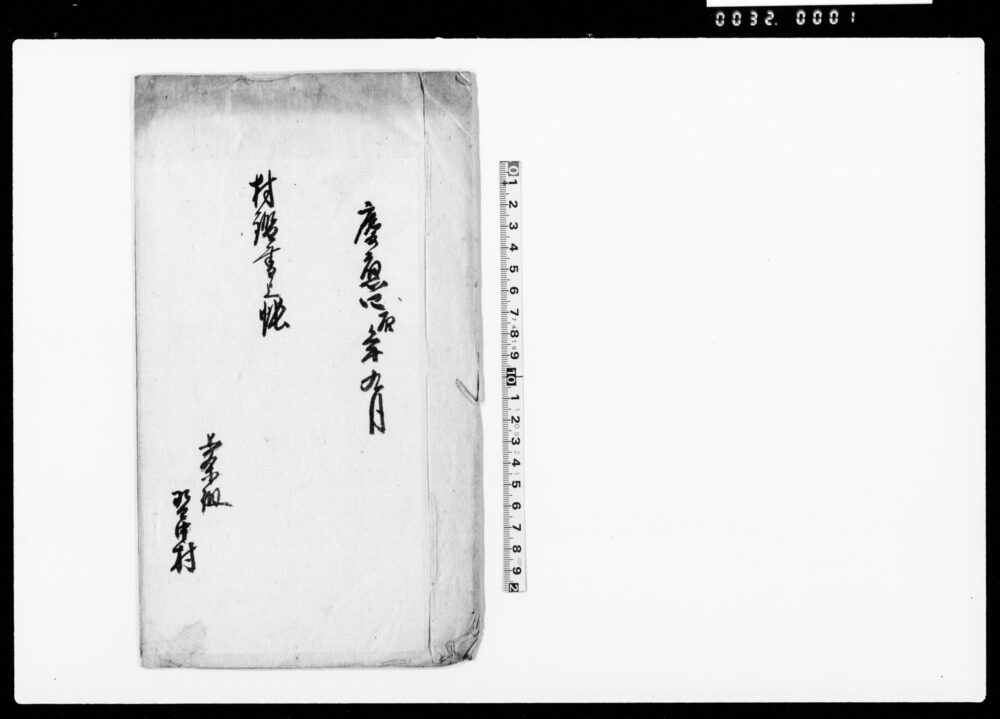 0032. 0001
慶應四辰年九月
村鑑書上帳
中村
0 1 2 3 4 5 6 7 8 9 10 1 2 3 4 5 6 7 8 9 2